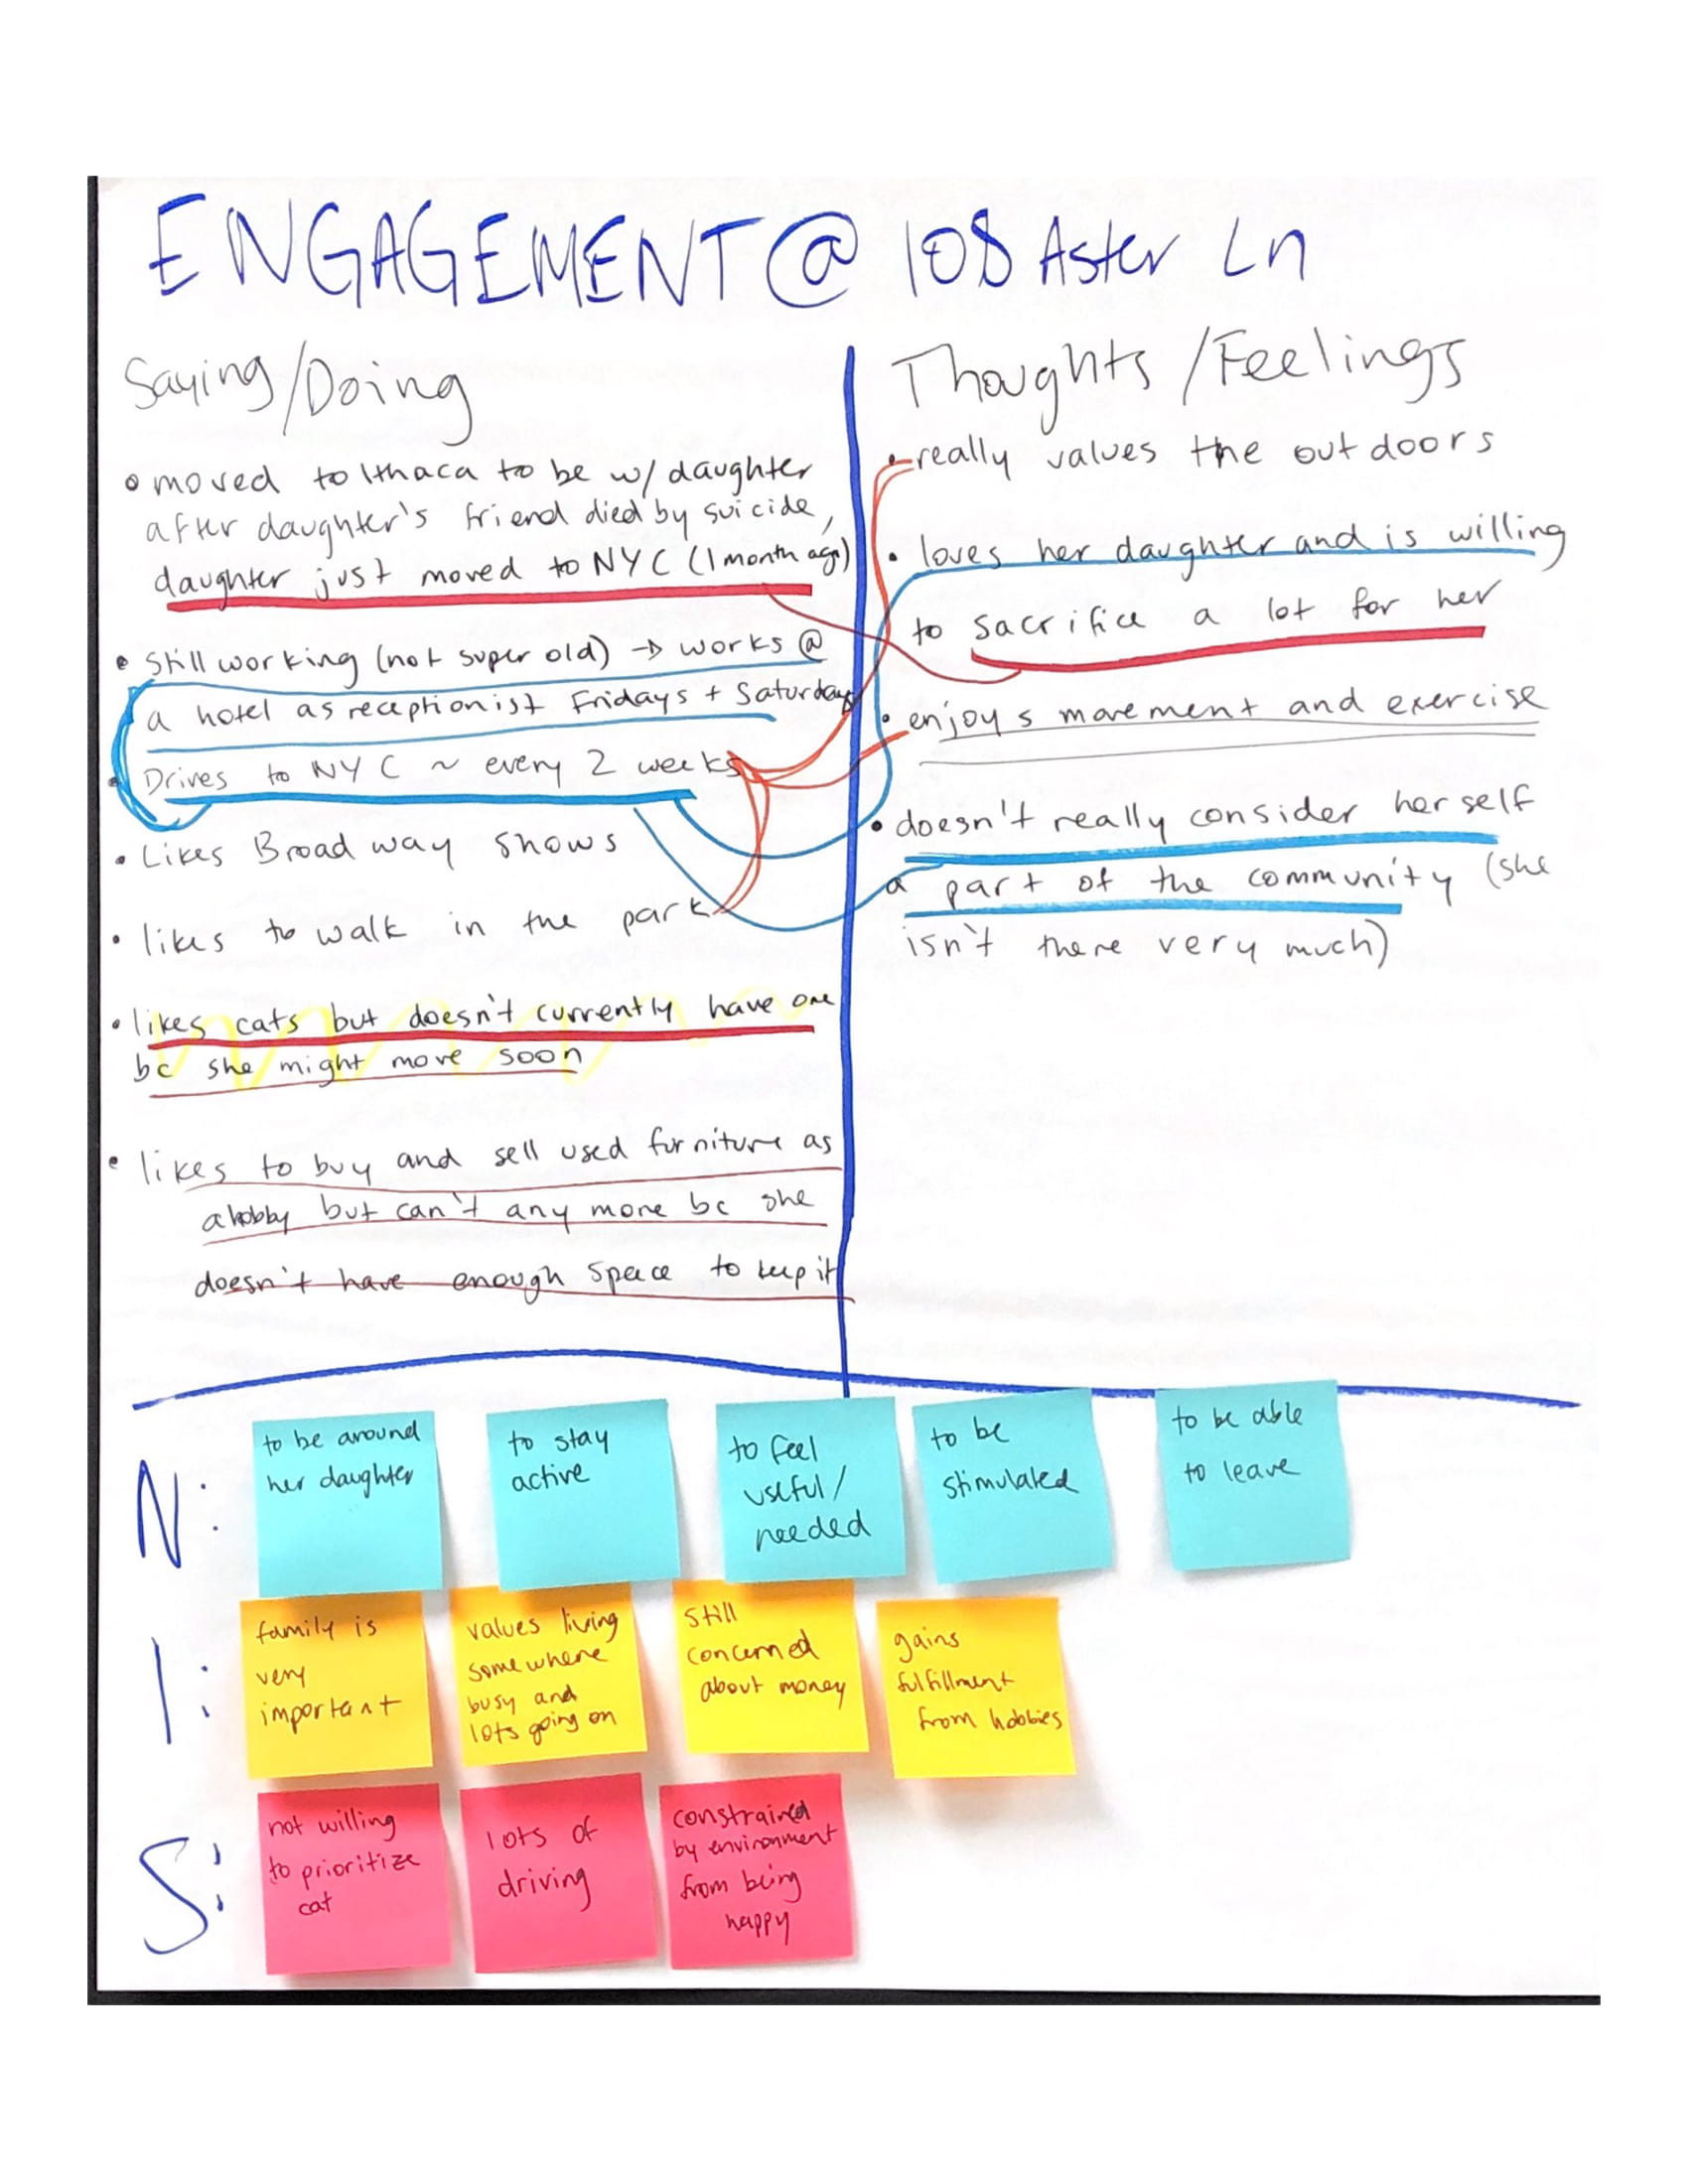 ENGAGEMENT @ 108 Aster Ln
Saying/Doing
• moved to Ithaca to be w/ daughter
after daughter's friend died by suicide,
daughter just moved to NYC (1 month ago)
• still working (not super old) → works @
a hotel as receptionist Fridays + Saturdays
• Drives to NYC ~ every 2 weeks
• Likes Broadway shows
• likes to walk in the park
• likes cats but doesn't currently have one
bc she might move soon
• likes to buy and sell used furniture as
a hobby but can't any more bc she
doesn't have enough space to keep it
Thoughts/Feelings
• really values the outdoors
• loves her daughter and is willing
to sacrifice a lot for her
• enjoys movement and exercise
• doesn't really consider herself
a part of the community (she
isn't there very much)
N:
to be around
her daughter
to stay
active
to feel
useful/
needed
to be
stimulated
to be able
to leave
I:
family is
very
important
values living
somewhere
busy and
lots going on
still
concerned
about money
gains
fulfillment
from hobbies
S:
not willing
to prioritize
cat
lots of
driving
constrained
by environment
from being
happy